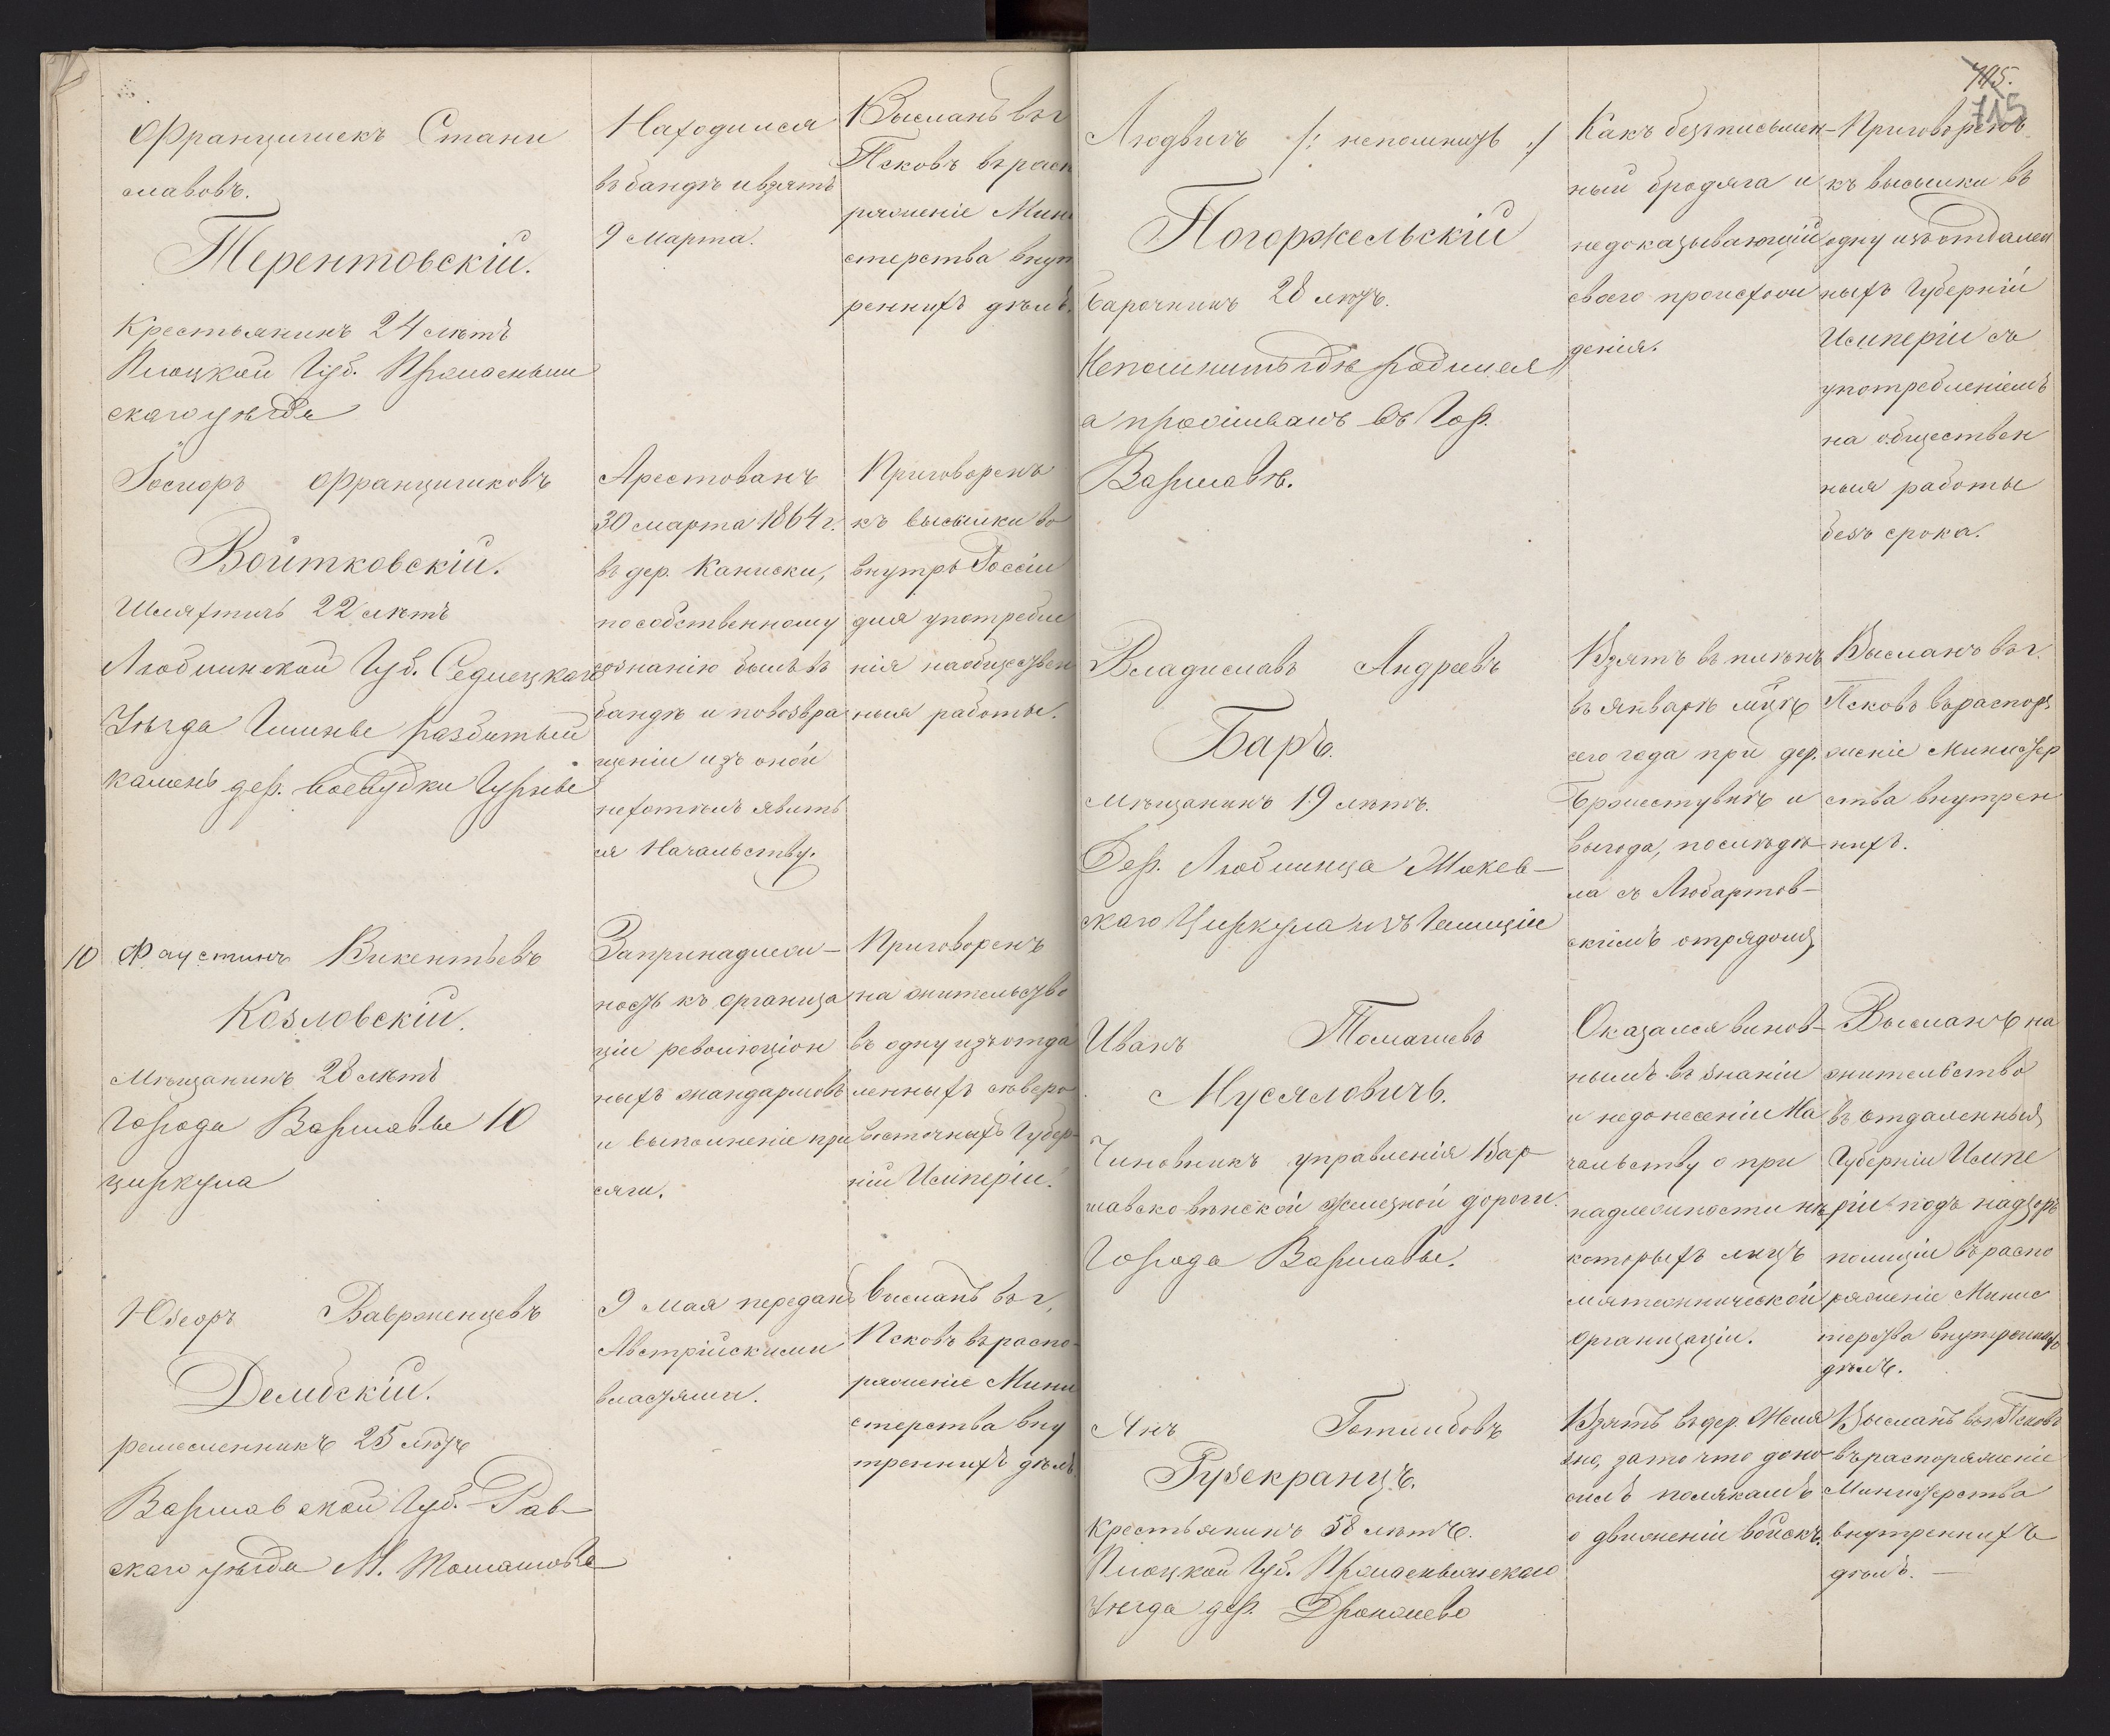 Францишекъ Стани
славовъ.
Терентовскій.
Крестьянинъ 24 лѣтъ
Плоцкой Губ. Прасныш
скаго уѣзда
Находился
въ бандѣ и взятъ
9 марта.
Высланъ въ г
Псковъ въ расп
ряженіе Мини
стерства внут
реннихъ дѣлъ.
Госпоръ Францишковъ
Войтковскій.
Шляхтичъ 22 лѣтъ
Люблинской Губ. Седлецкаго
Уѣзда Гмины разбитый
камень дер.
Арестованъ
30 марта 1864 г.
въ дер. Каниски,
по собственному
сознанію былъ въ
бандѣ и по возвра
щеніи изъ оной
не хотѣлъ явить
ся Начальству.
Приговоренъ
къ высылки во
внутрь Россіи
для употребле
нія на обществен
ныя работы.
10 Фаустинъ Викентьевъ
Козловскій.
Мѣщанинъ 28 лѣтъ
Города Варшавы 10
циркула
За принадлеж-
ность къ организа
ціи революціон
ныхъ жандармовъ
и выполненіе при
сяги.
Приговоренъ
на жительство
въ одну изъ отда
ленныхъ сѣверо
восточныхъ Губер-
ній Имперіи.
Юзеоръ Вавроженцевъ
Дембскій.
ремесленникъ 25 лѣтъ
Варшавской Губ. Рав-
скаго уѣзда М. Томашова
9 мая переданъ
Австрійскими
властями.
Высланъ въ г.
Псковъ въ распо-
ряженіе Мини
стерства вну
треннихъ дѣлъ.
715.
715
Людвигъ /: непомнитъ :/
Погоржельскій
Барочникъ 28 лѣтъ.
Непомнитъ гдѣ родился
а проживалъ въ Гор.
Варшавѣ.
Какъ безписьмен-
ный бродяга и
недоказывающій
своего происхож
денія.
Приговоренъ
къ высылки въ
одну изъ отдален
ныхъ Губерній
Имперіи съ
употребленіемъ
на обществен
ныя работы
безъ срока.
Владиславъ Андреевъ
Баръ.
мѣщанинъ 19 лѣтъ.
Дер. Люблинца Жикев-
скаго Циркула изъ Галиціи
Взятъ въ плѣнъ
въ январѣ мцѣ
сего года при дер.
и
выгода, послѣ дѣ
ла съ Любартов-
скимъ отрядомъ
Высланъ въ г.
Псковъ въ распор
яженіе Министер
ства внутрен
нихъ.
Иванъ Томашевъ
Мусяловичъ.
Чиновникъ управленія Вар
шавско вѣнской желѣзной дороги.
Города Варшавы.
Оказался винов-
нымъ въ знаніи
и недонесеніи На
чальству о при
надлежности нѣ
которыхъ лицъ
мятежнической
организаціи.
Высланъ на
жительство
въ отдаленныя
Губерніи Импе
ріи подъ надзоръ
полиціи въ распо
ряженіе Минис
терства внутреннихъ
дѣлъ.
Янъ Готлибовъ
Рузекранцъ.
Крестьянинъ 58 лѣтъ.
Плоцкой Губ. Праснышскаго
Уѣзда дер.
Взятъ въ дер.
за то что доно-
силъ полякамъ
о движеніи войскъ.
Высланъ въ г. Псковъ
въ распоряженіе
Министерства
внутреннихъ
дѣлъ. —